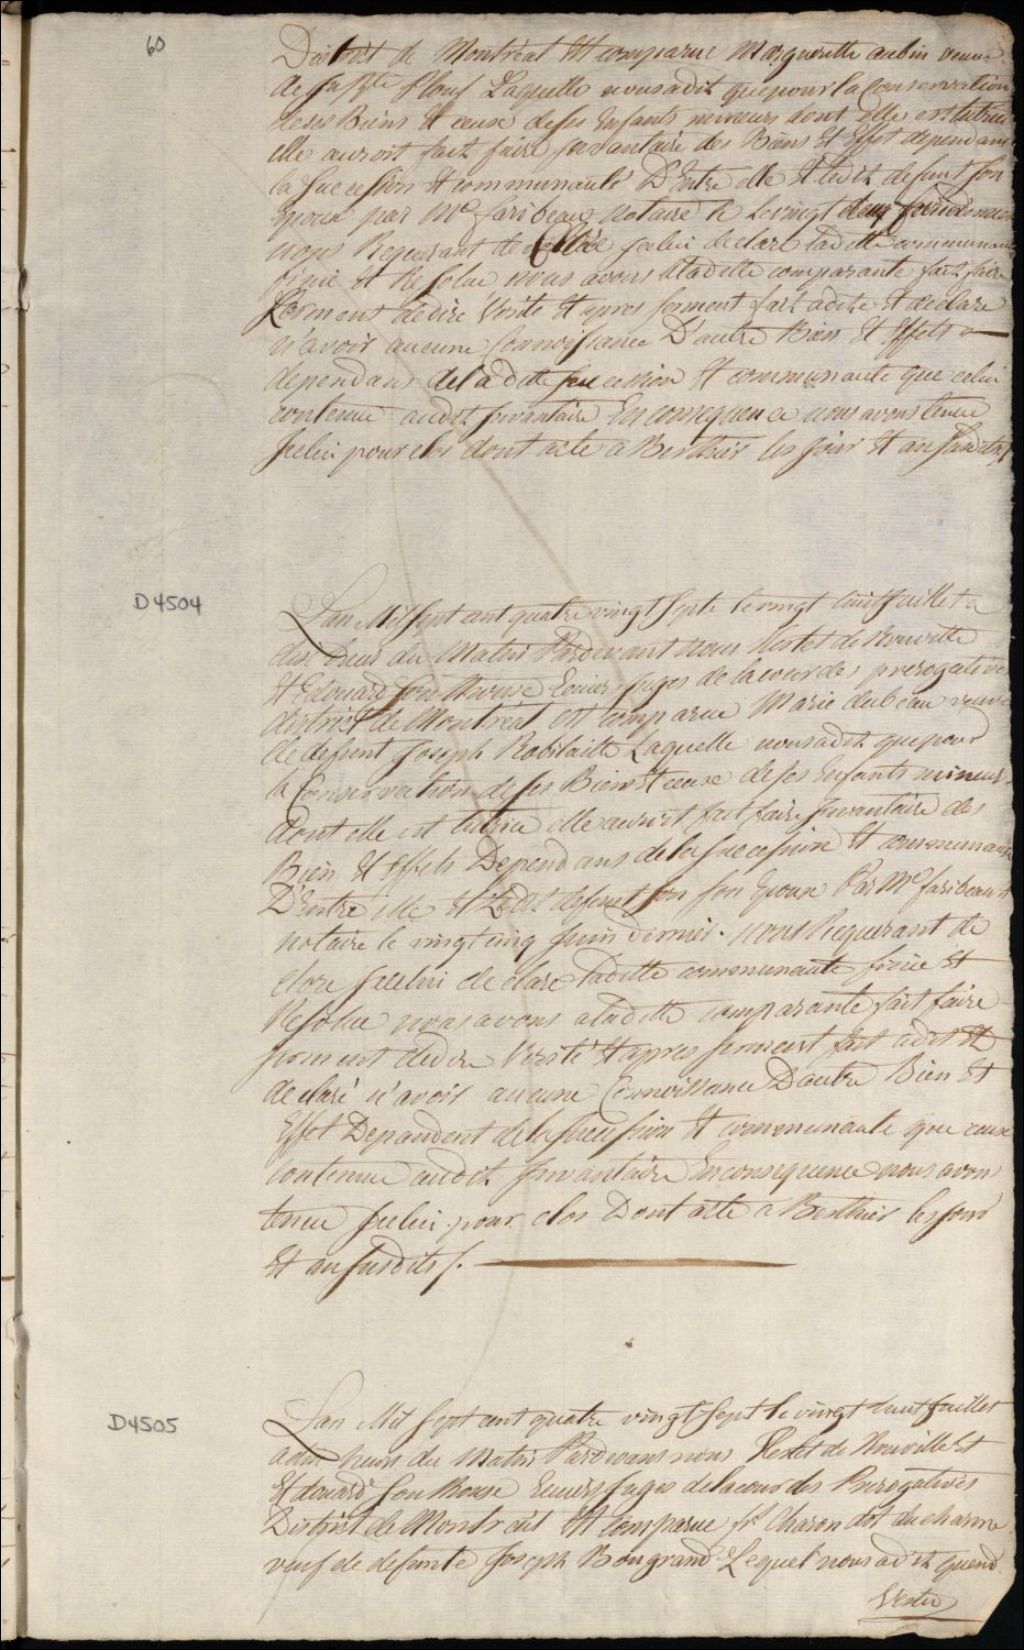 60
District de Montréal Est comparue Margueritte aubin veuve
de Jn Bte Plouf Laquelle nous a dit que pour la Conservation
de ses Biens Et ceux de ses Enfants mineurs dont elle est tutrice
elle auroit fait faire Inventaire des Biens Et Effet dependans
la Succession Et communauté D'Entre elle Et ledit defunt son
Epoux par Me faribeau notaire le le vingt deux
nous Requerant de Clore Icelui declare ladette communauté
finie Et Resolue nous avons A ladette comparante fait faire
Serment de dire Verité Et apres serment fait a dit Et declare
n'avoir aucune Connoissance D'autre Bien Et Effets
dependans de la dette Succession Et communaute que celui
contenue audit Inventaire En consequence nous avons tenue
Icelui pour clos dont acte a Berthier les Jour Et an Susdits
D4504
Lan Mil Sept cent quatre vingt Septe le vingt huit Juillet a
dix heurs du Matin Pardevant nous Hertel de Rouville
Et Edouard Southouse Ecuiers Juges de la cour des prerogatives
district de Montreal est comparue Marie dubeau veuve
de defunt Joseph Robitaille Laquelle nous a dit que pour
la Conservation de ses Biens Et ceux de ses Enfants mineurs
dont elle est tutrice elle auroit fait faire Inventaire des
Bien Et Effets Dependans de la Succession Et communauté
D'Entre elle Et Ledit defunt son son Epoux Par Me faribeau
notaire le vingt cinq Juin dernier. nous Requerant de
clore Icelui declare Ladette communaute finie Et
Resolue nous avons a ladette comparante fait faire
serment de dire Verité Et apres serment fait a dit Et
declaré n'avoir aucune Connoissance D'autre Bien Et
Effet Dependent de la Succession Et communaute que ceux
contenue audit Inventaire En consequence nous avons
tenue Icelui pour clos Dont acte a Berthier les Jour
Et an Susdits /.
D4505
Lan Mil Sept cent quatre vingt Sept le vingt huit Juillet
a dix heurs du Matin Pardevans nous Hertel de Rouville Et
Edouard Southouse Ecuiers Juges de la cour des Prerogatives
District de Montreal Est comparue fr Charon dit ducharme
veuf de defunte Joseph Baugrand Lequel nous a dit quand